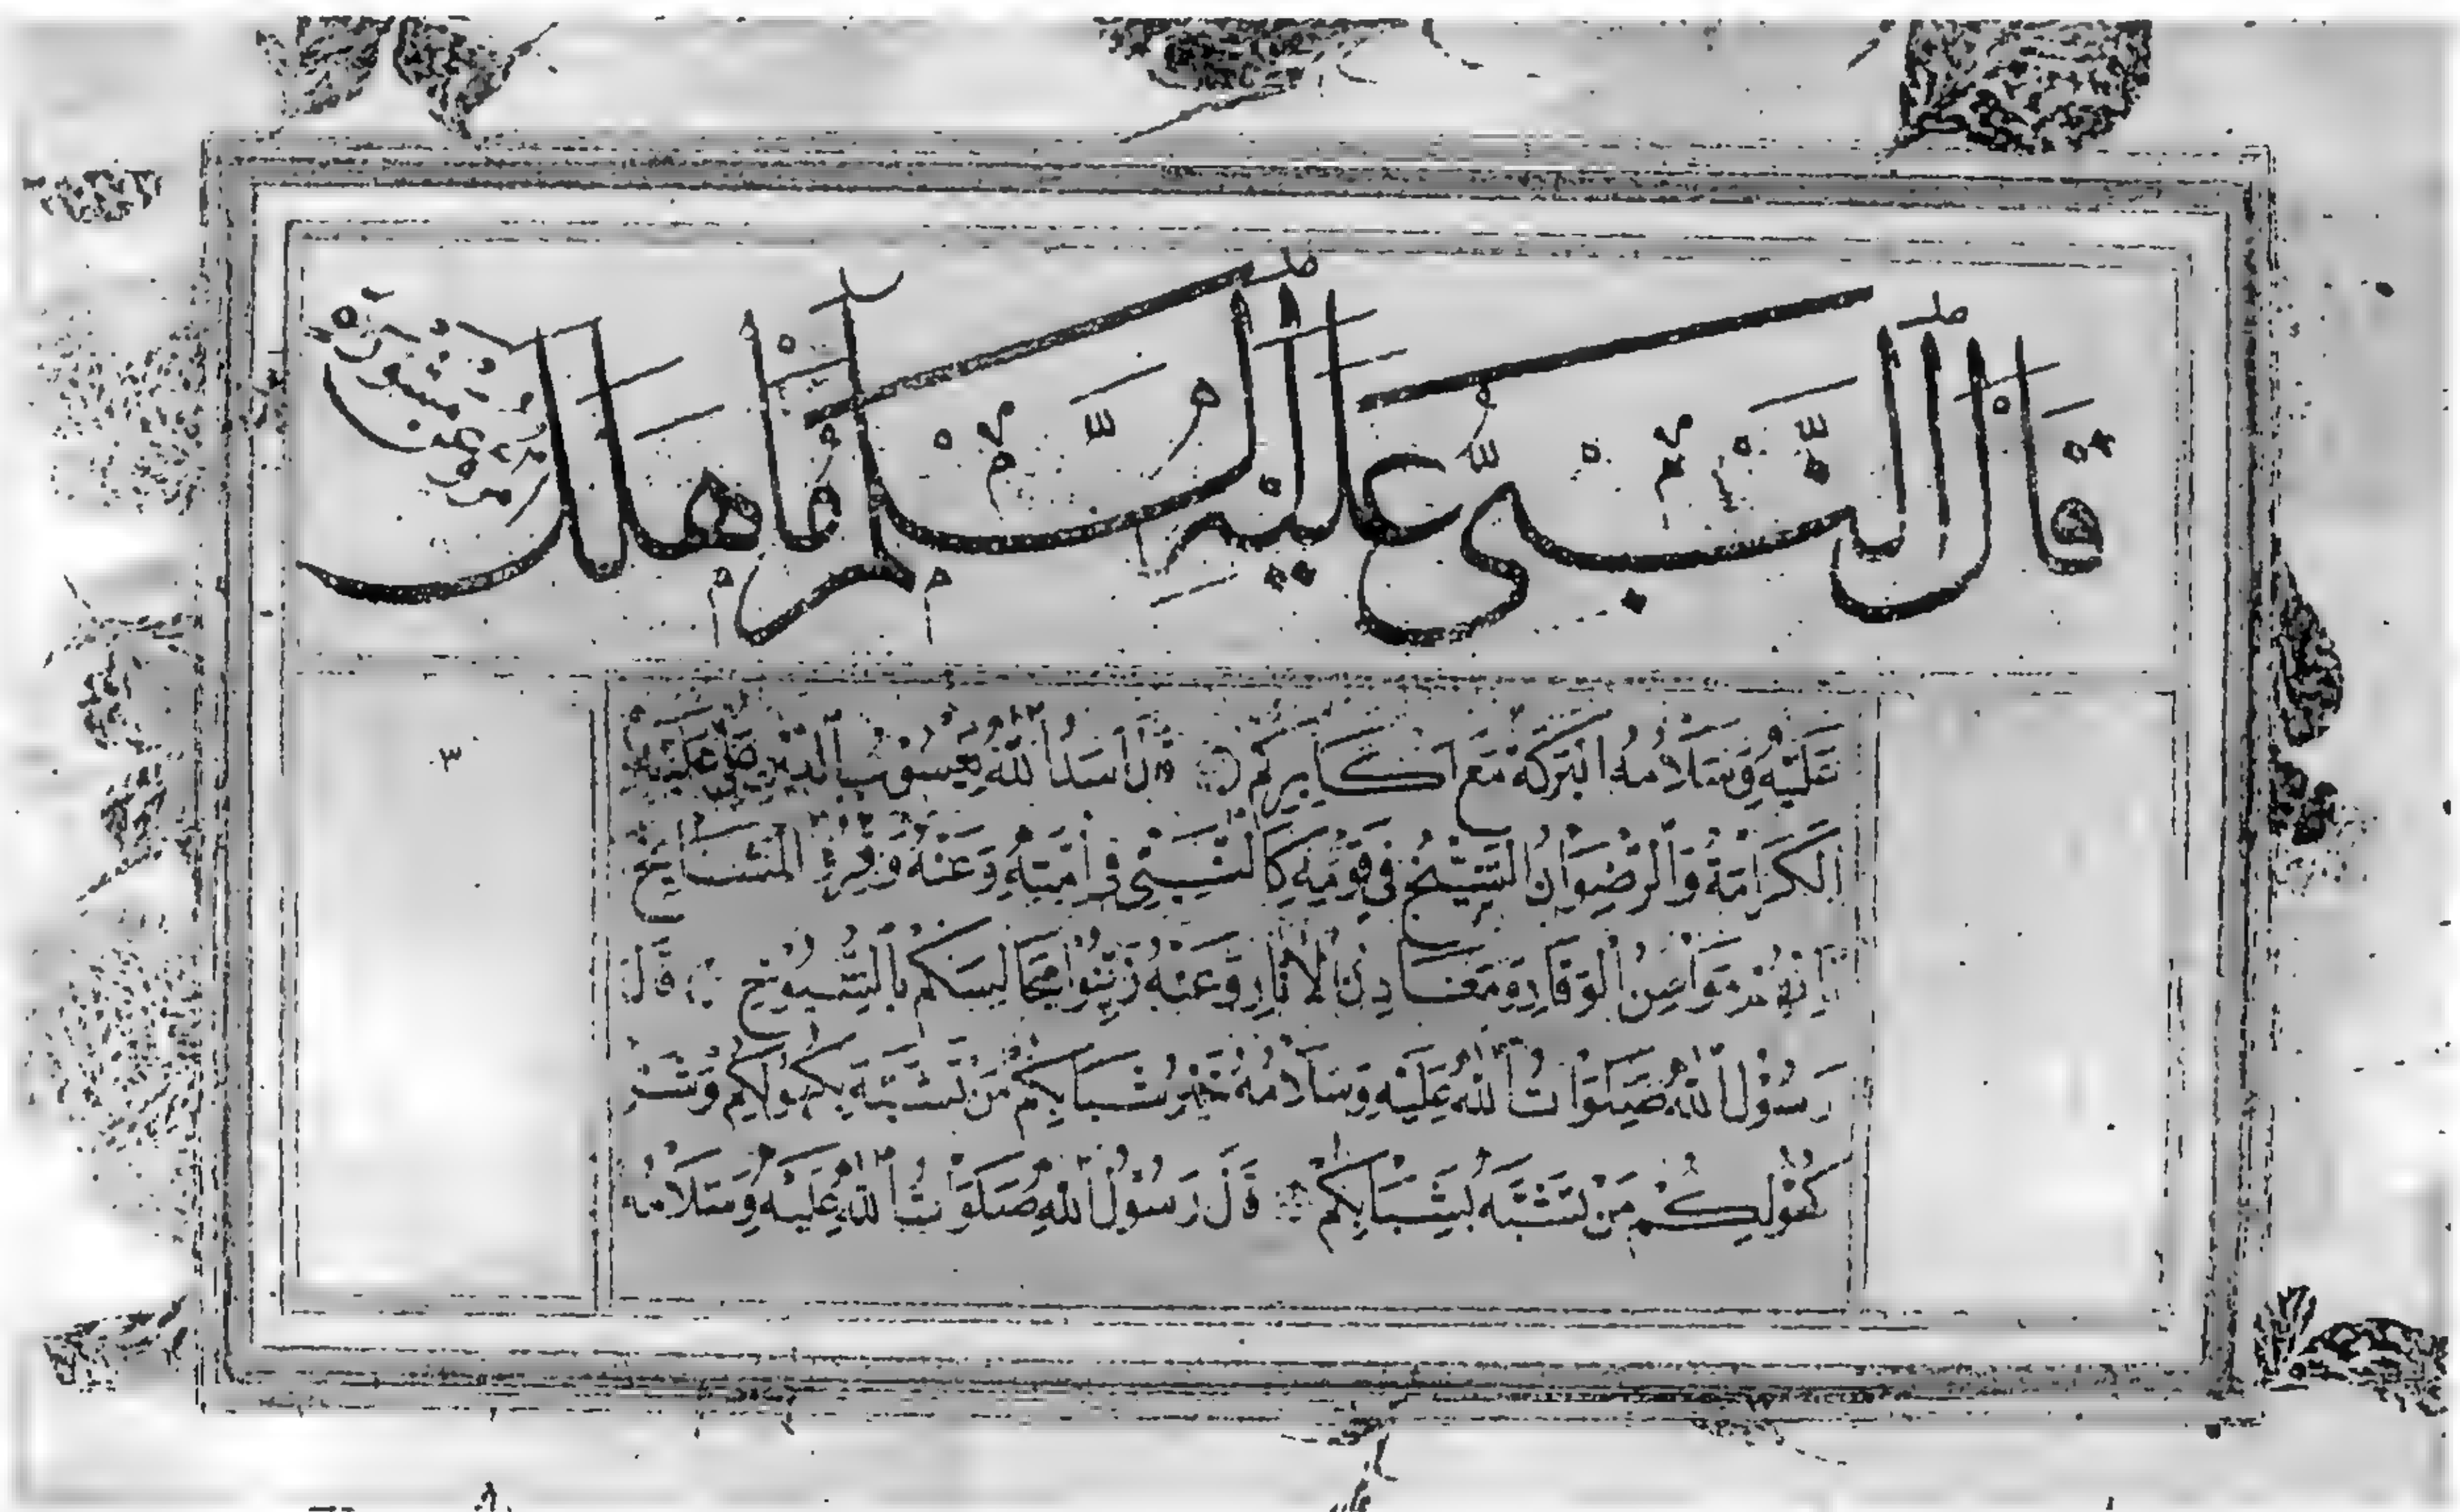 قال النبي عليه السلم ما هلك امرؤ عن مشورة
عليه وسلامه البركة مع اكابركم قال اسد الله يعسوب الدين علي عليه
الكرامة والرضوان الشيخ في قومه كالنبي في امته وعنه وقروا المشايخ
الوقار ومعادن الآثار وعنه زينوا مجالسكم بالشيوخ قال
رسول الله صلوات الله عليه وسلامه خير شبابكم من تشبه بكهولكم وشر
كهولكم من تشبه بشبابكم قال رسول الله صلوات الله عليه وسلامه
٣